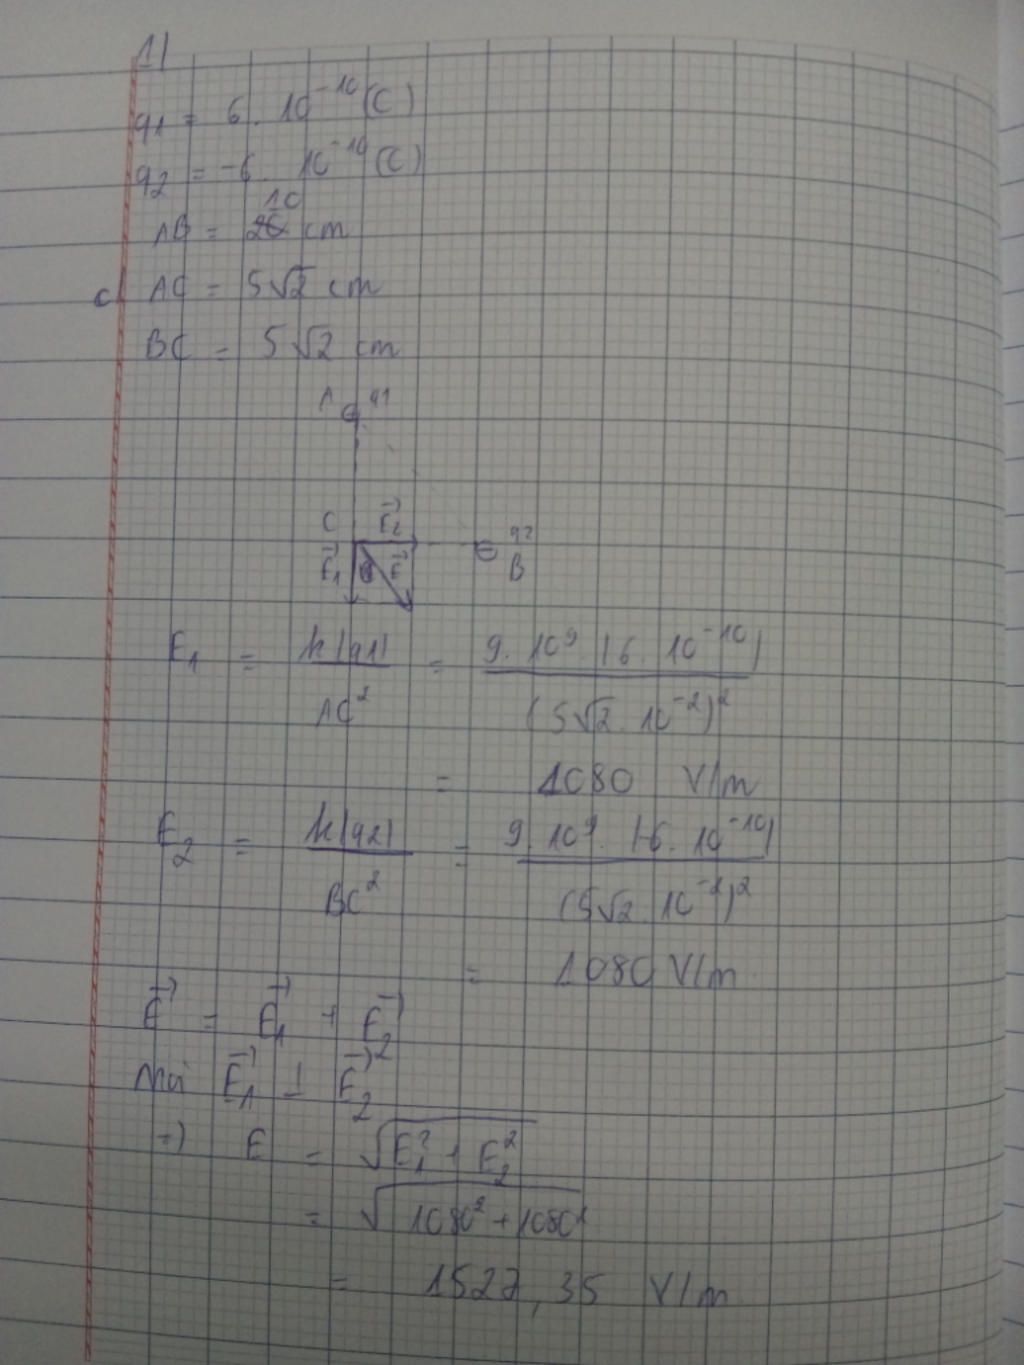 1/
q1 = 6 . 10^-10 (C)
q2 = -6 . 10^-10 (C)
10
AB = 20 cm
c) AC = 5√2 cm
BC = 5√2 cm
A q1
C E2→ q2
E1→ E→ B
E1 = k|q1| / AC² = 9 . 10^9 . |6 . 10^-10| / (5√2 . 10^-2)²
= 1080 V/m
E2 = k|q2| / BC² = 9 . 10^9 . |-6 . 10^-10| / (5√2 . 10^-2)²
= 1080 V/m
E→ = E1→ + E2→
Mà E1→ ⊥ E2→
=) E = √(E1² + E2²)
= √(1080² + 1080²)
= 1527,35 V/m